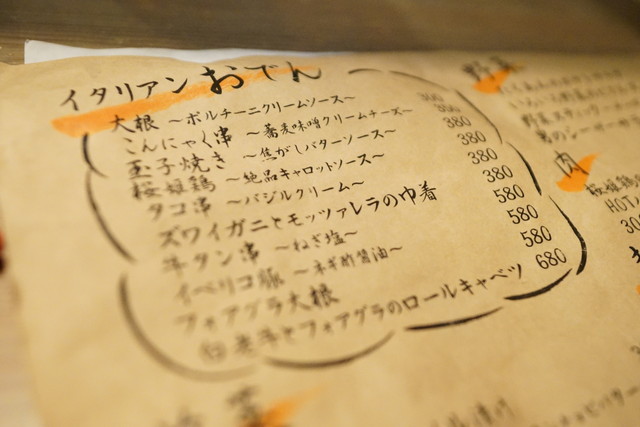 イタリアン おでん
大根 ～ポルチーニクリームソース～ 380
こんにゃく串 ～蕎麦味噌クリームチーズ～ 380
玉子焼き ～焦がしバターソース～ 380
桜姫鶏 ～絶品キャロットソース～ 380
タコ串 ～バジルクリーム～ 380
ズワイガニとモッツァレラの巾着 380
牛タン串 ～ねぎ塩～ 580
イベリコ豚 ～ネギ酢醤油～ 580
フォアグラ大根 580
白老牛とフォアグラのロールキャベツ 680
野菜
肉
桜姫鶏の
HOT